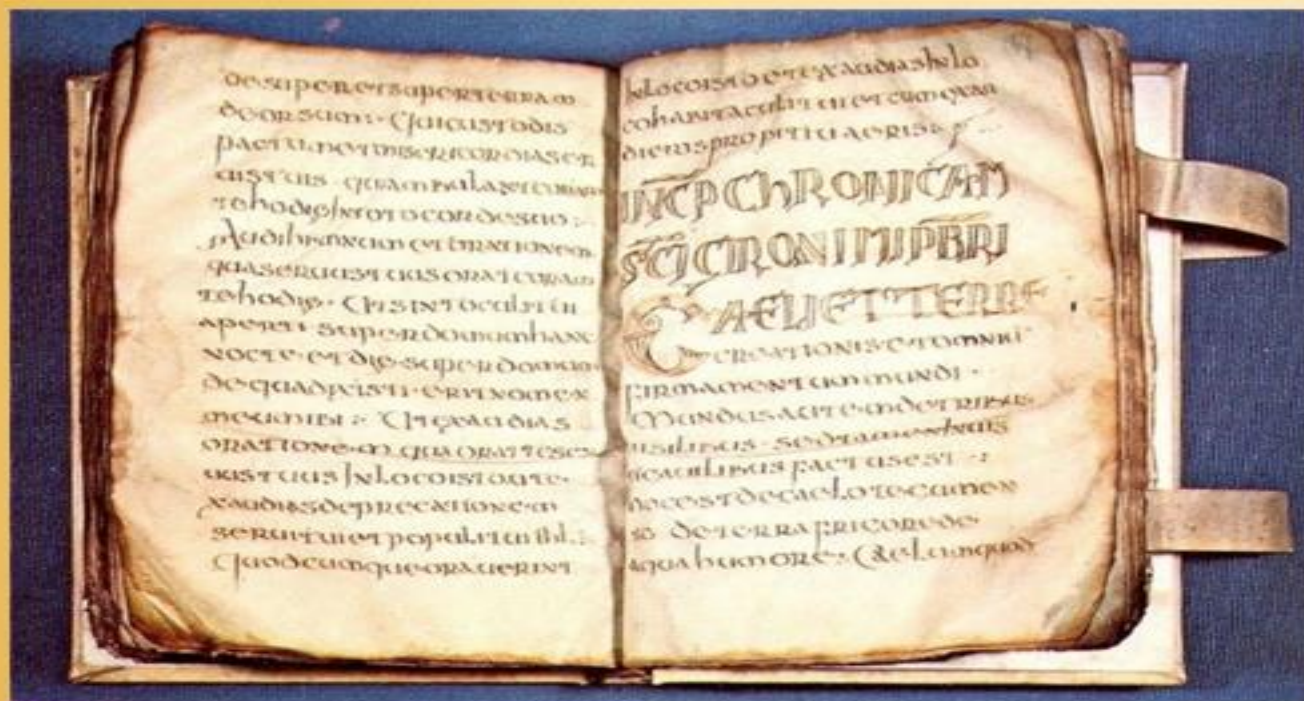 desuper et super terram
deorsum :· Qui custodis
pactu et misericordias ser
uis tuis · qui ambulant coram
te hodie in toto corde suo :·
Audi et orationem
qua seruus tuus orat coram
te hodie · Ut sint oculi tui
aperti super domum hanc
nocte et die · super domum
de qua dixisti · erit nomen
meum ibi :· Ut exaudias
oratione m qua orat te ser
uus tuus in loco isto ad te ·
exaudias deprecatione m
serui tui et populi tui isl :·
Quodcumque orauerint
in loco isto et exaudias in lo
co habitaculi tui et cum exau
dieris propitius eris :·
INCP CHRONICAM
SCI CIRONIMI PBRI
CAELI ET TERRE
CREATIONIS et
firmamentum mundi ·
Mundus de tribus
uisilibus · sed tamen
factus est :·
hoc est de caelo
de terra fricore de
aqua humore · Caelum quod